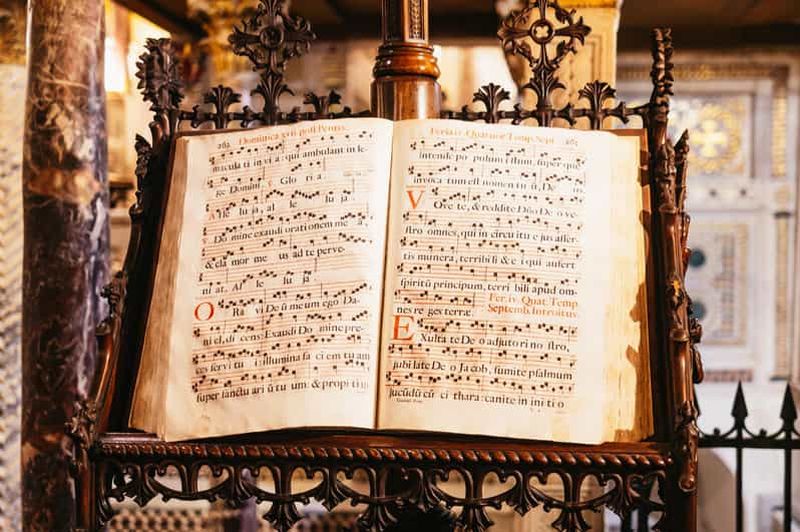 262 Dominica xvii post Pentec.
macula ti in vi a : qui ambulant in le-
ge Domini. Glo ri a.
Alle lu ja, al le lu ja
Do mine exaudi orati onem me a,
& cla mor me us ad te perve-
ni at. Al le lu ja
O Ra vi De ū me um ego Da-
ni el, di cens: Exaudi Do mine pre-
ces servi tu illumina fa ci em tu am
super sanctu ari ū tu um : & propi ti
Feria iv Quatuor Temp. Sept. 263
intende po pulum istum super que
invoca tum est nomen tu ū, De
V Ove te, & reddite Dño De o ve-
stro omnes, qui in circu itu e jus affer-
tis munera, terribi li & e i qui aufert
spiritū principum, terri bili apud om-
nes re ges terræ. Fer. iv. Quat. Temp.
Septemb. Introitus.
E Xulta te De o adjuto ri no stro,
jubilate De o Jacob, sumite psalmum
jucūdū cū ci thara : canite in ini ti o